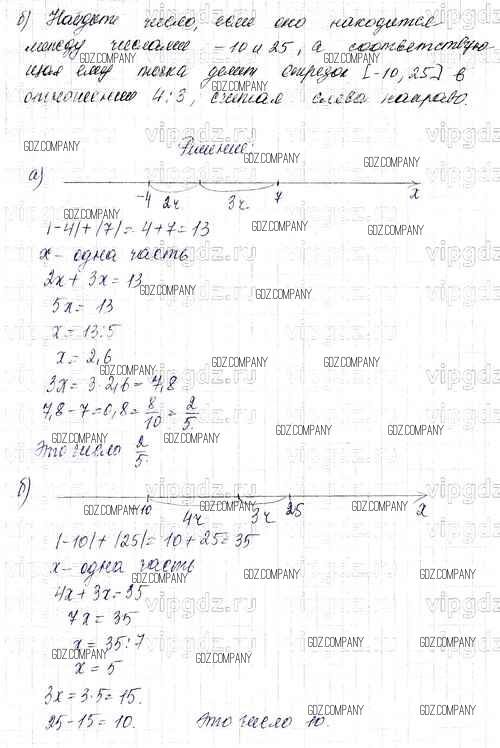 б) Найдите число, если оно находится
между числами -10 и 25, а соответствую-
щая ему точка делит отрезок [-10, 25] в
отношении 4:3, считая слева направо.
Решение:
а)
-4 2ч 3ч 7 x
|-4|+|7|= 4+7=13
x - одна часть
2x + 3x = 13
5x = 13
x = 13:5
x = 2,6
3x = 3·2,6 = 7,8
7,8 - 7 = 0,8 = 8/10 = 2/5.
Это число 2/5.
б)
-10 4ч 3ч 25 x
|-10|+|25|= 10+25=35
x - одна часть
4x + 3x = 35
7x = 35
x = 35:7
x = 5
3x = 3·5 = 15.
25-15 = 10. Это число 10.
GDZ.COMPANY
vipgdz.ru